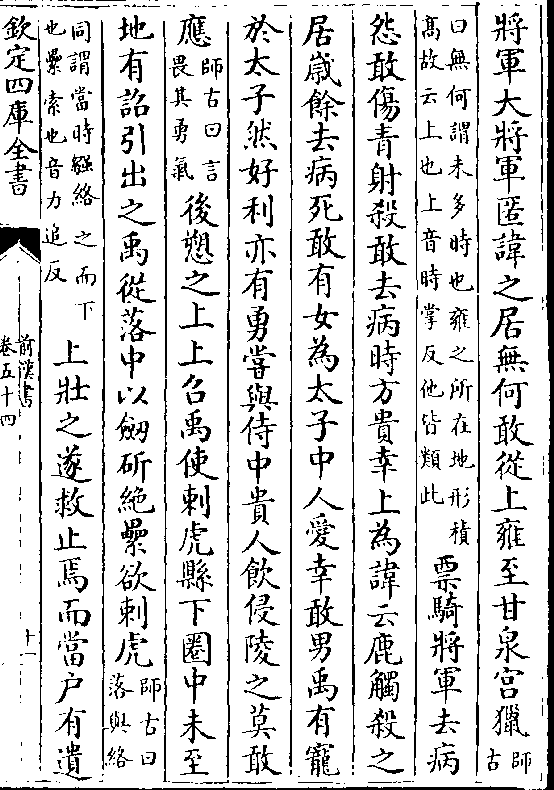 將軍大將軍匿諱之居無何敢從上雍至甘泉宫獵師古
曰無何謂未多時也雍之所在地形積
高故云上也上音時掌反他皆類此
票騎將軍去病
怨敢傷青射殺敢去病時方貴幸上為諱云鹿觸殺之
居歲餘去病死敢有女為太子中人愛幸敢男禹有寵
於太子然好利亦有勇嘗與侍中貴人飲侵陵之莫敢
應師古曰言
畏其勇氣
後愬之上上召禹使刺虎縣下圈中未至
地有詔引出之禹從落中以劒斫絶纍欲刺虎師古曰
落與絡
同謂當時繦絡之而下
也纍索也音力追反
上壯之遂救止焉而當户有遺
欽定四庫全書
前漢書
卷五十四
十一